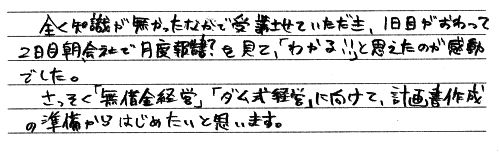 全く知識が無かったなかで受講させていただき、1日目がおわって
2日目朝会社で月度報譜?を見て、「わかる!!」と思えたのが感動
でした。
さっそく「無借金経営」「ダム式経営」に向けて、計画書作成
の準備からはじめたいと思います。